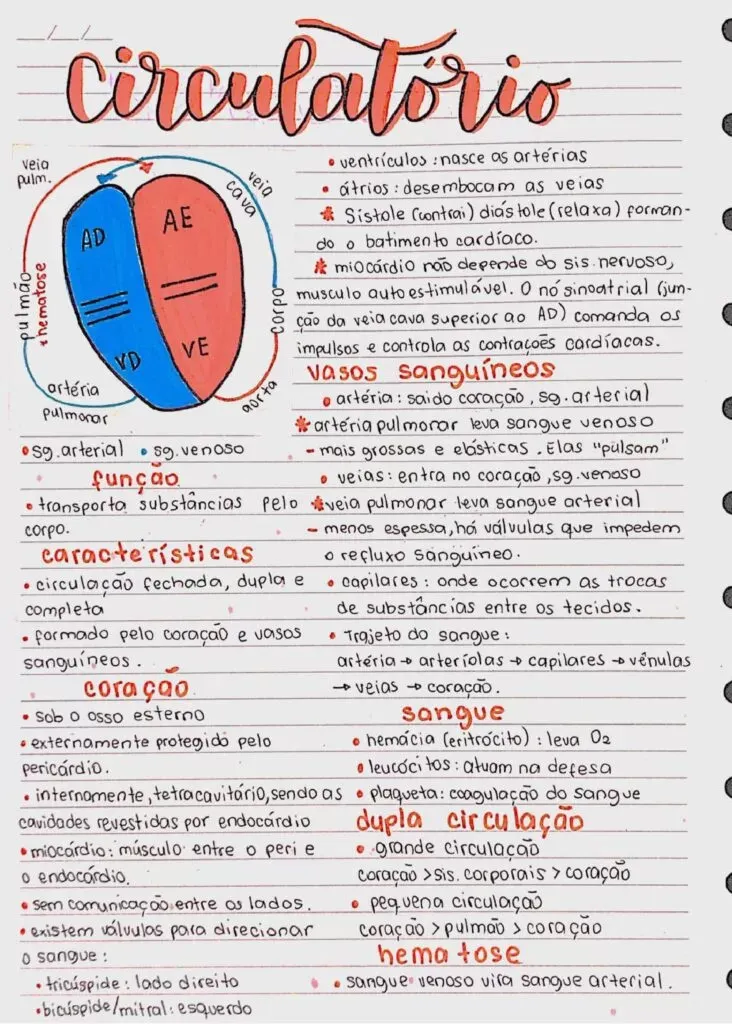 __/__/__
circulatório
veia
pulm.
veia
cava
AD
AE
VD
VE
pulmão
*hematose
corpo
artéria
pulmonar
aorta
• sg. arterial • sg. venoso
função
• transporta substâncias pelo
corpo.
características
• circulação fechada, dupla e
completa
• formado pelo coração e vasos
sanguíneos.
coração
• sob o osso esterno
• externamente protegido pelo
pericárdio.
• internamente, tetracavitário, sendo as
cavidades revestidas por endocárdio
• miocárdio: músculo entre o peri e
o endocárdio.
• sem comunicação entre os lados.
• existem válvulas para direcionar
o sangue:
• tricúspide: lado direito
• bicúspide/mitral: esquerdo
• ventrículos: nasce as artérias
• átrios: desembocam as veias
* Sístole (contrai) diástole (relaxa) forman-
do o batimento cardíaco.
* miocárdio não depende do sis. nervoso,
musculo autoestimulável. O nó sinoatrial (jun-
ção da veia cava superior ao AD) comanda os
impulsos e controla as contrações cardíacas.
vasos sanguíneos
• artéria: saido coração, sg. arterial
* artéria pulmonar leva sangue venoso
- mais grossas e elásticas. Elas "pulsam"
• veias: entra no coração, sg. venoso
* veia pulmonar leva sangue arterial
- menos espessa, há válvulas que impedem
o refluxo sanguíneo.
• capilares: onde ocorrem as trocas
de substâncias entre os tecidos.
• Trajeto do sangue:
artéria → arteríolas → capilares → vênulas
→ veias → coração.
sangue
• hemácia (eritrócito): leva O2
• leucócitos: atuam na defesa
• plaqueta: coagulação do sangue
dupla circulação
• grande circulação
coração > sis. corporais > coração
• pequena circulação
coração > pulmão > coração
hematose
• sangue venoso vira sangue arterial.